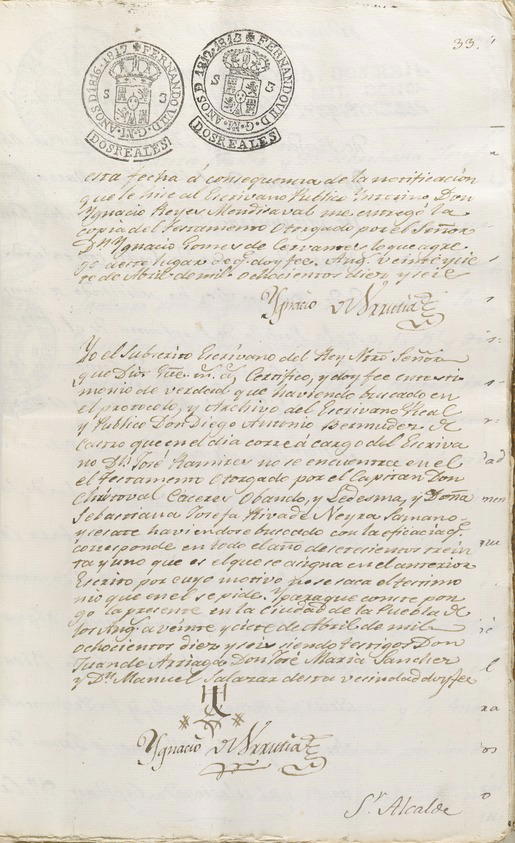 33.
FERNANDO VII. D. G. M. AÑOS D 1816. 1817.
S 3
DOS REALES
FERNANDO VII. D. G. M. AÑOS D 1812. 1813
S 3
DOS REALES
esta fecha á consequencia de la notificación
que le hise al Escrivano Publico Interino, Don
Ygnacio Reyes Mendisaval me entregó la
copia del Testamento Otorgado por el Señor
Dn Ygnacio Gomes de Cervantes lo que agre
go á este lugar de q. doy fee. Ang. veinte y cie
te de Abril de mil ochocientos diez y seis
Ygnacio de Urrutia
Yo el Subscrito Escrivano del Rey Ntro Señor
que Dios Gue. ms as Certifico, y doy fee en testi
monio de verdad que haviendo buscado en
el protocolo, y Archivo del Escrivano Real
y Publico Don Diego Antonio Bermudez de
Castro que en el dia corre á cargo del Escriva
no Dn José Ramires no se encuentra en el
el Testamento Otorgado por el Capitan Don
Christoval Caceres Obando, y Ledesma, y Doña
Sebastiana Josefa Rivade Neyra Samano
y es este haviendose buscado con la eficacia q.
corresponde en todo el año de setecientos trein
ta y uno que es el que se asigna en el anterior
Escrito por cuyo motivo no se saca el testimo
nio que en el se pide. Y para que conste pon
go la presente en la Ciudad de la Puebla de
los Ang. a veinte y ciete de Abril de mil
ochocientos diez y seis siendo testigos Don
Juan de Arriaga Don José Maria Sanchez
y Dn Manuel Salazar de esta vecindad doy fee
Ygnacio de Urrutia
Sr. Alcalde